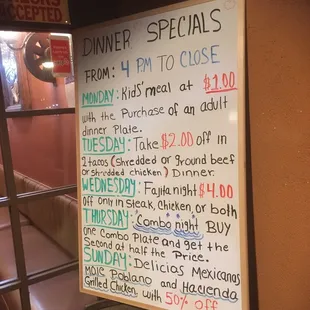 ACCEPTED
DINNER SPECIALS
FROM: 4 PM TO CLOSE
MONDAY: Kids' meal at $1.00
with the Purchase of an adult
dinner Plate.
TUESDAY: Take $2.00 off in
2 tacos (Shredded or Ground beef
or shredded chicken) Dinner.
WEDNESDAY: Fajita night $4.00
off only in Steak, Chicken, or both
THURSDAY: "Combo night" BUY
one Combo Plate and get the
Second at half the Price.
SUNDAY: Delicias Mexicanas
Mole Poblano and Hacienda
Grilled Chicken with 50% OFF